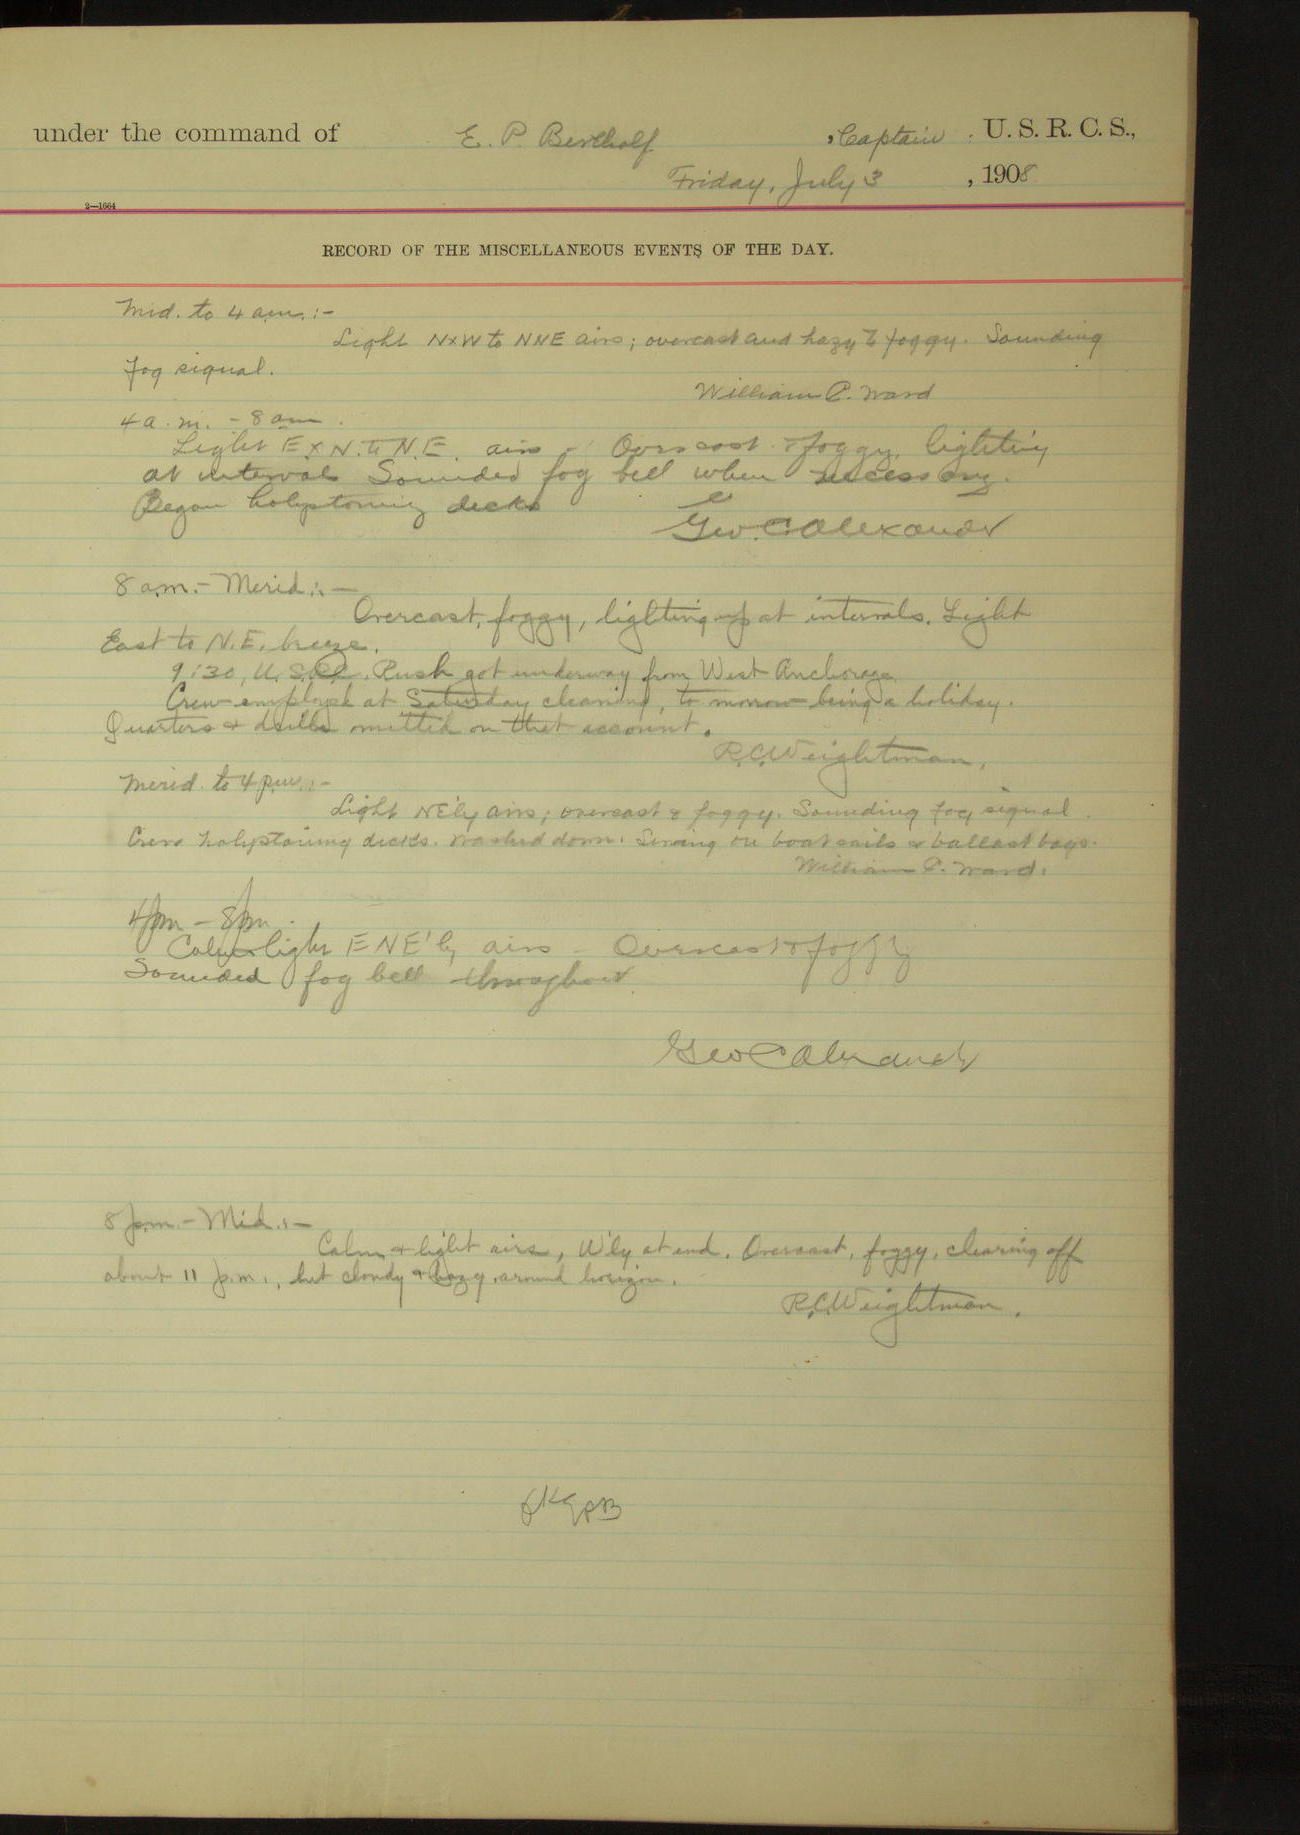 under the command of E. P. Bertholf , Captain . U. S. R. C. S.,
Friday, July 3 , 1908
2—1664
RECORD OF THE MISCELLANEOUS EVENTS OF THE DAY.
Mid. to 4 a.m. :-
Light NxW to NNE airs; overcast and hazy to foggy. Sounding
fog signal.
William P. Ward
4 a.m. - 8 am.
Light E x N. to N.E. airs - Overcast & foggy, lighting
at intervals Sounded fog bell when necessary.
Began holystoning decks
Geo. C Alexander
8 a.m. - Merid.:-
Overcast, foggy, lighting up at intervals. Light
East to N.E. breeze.
9:30, U.S. Rush got underway from West Anchorage
Crew employed at Saturday cleaning, to morrow being a holiday.
Quarters & drills omitted on that account.
R.C. Weightman.
Merid. to 4 p.m. :-
Light NE'ly airs; overcast & foggy. Sounding fog signal.
Crew holystoning decks. Washed down. Sewing on boat sails & ballast bags.
William P. Ward.
4 pm - 8 pm.
Calm light ENE'ly airs - Overcast & foggy
Sounded fog bell throughout.
Geo C Alexander
8 p.m. - Mid. :-
Calm & light airs, W'ly at end. Overcast, foggy, clearing off
about 11 p.m., but cloudy & hazy around horizon.
R.C. Weightman.